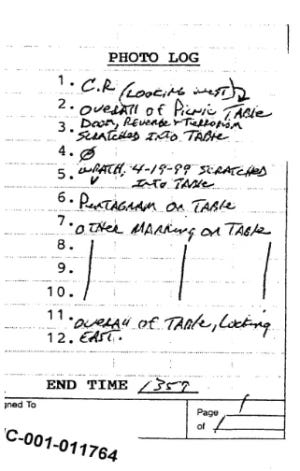 PHOTO LOG
1. C.R (Looking west)
2. overall of Picnic Table
3. Doom, Revenge + Terrorism
scratched into Table
4. Ø
5. wrath, 4-19-99 scratched
into Table
6. Pentagram on Table
7. other Marking on Table
8.
9.
10.
11. overall of Table, Looking
12. EAST.
END TIME 1357
gned To
Page 1
of 1
C-001-011764